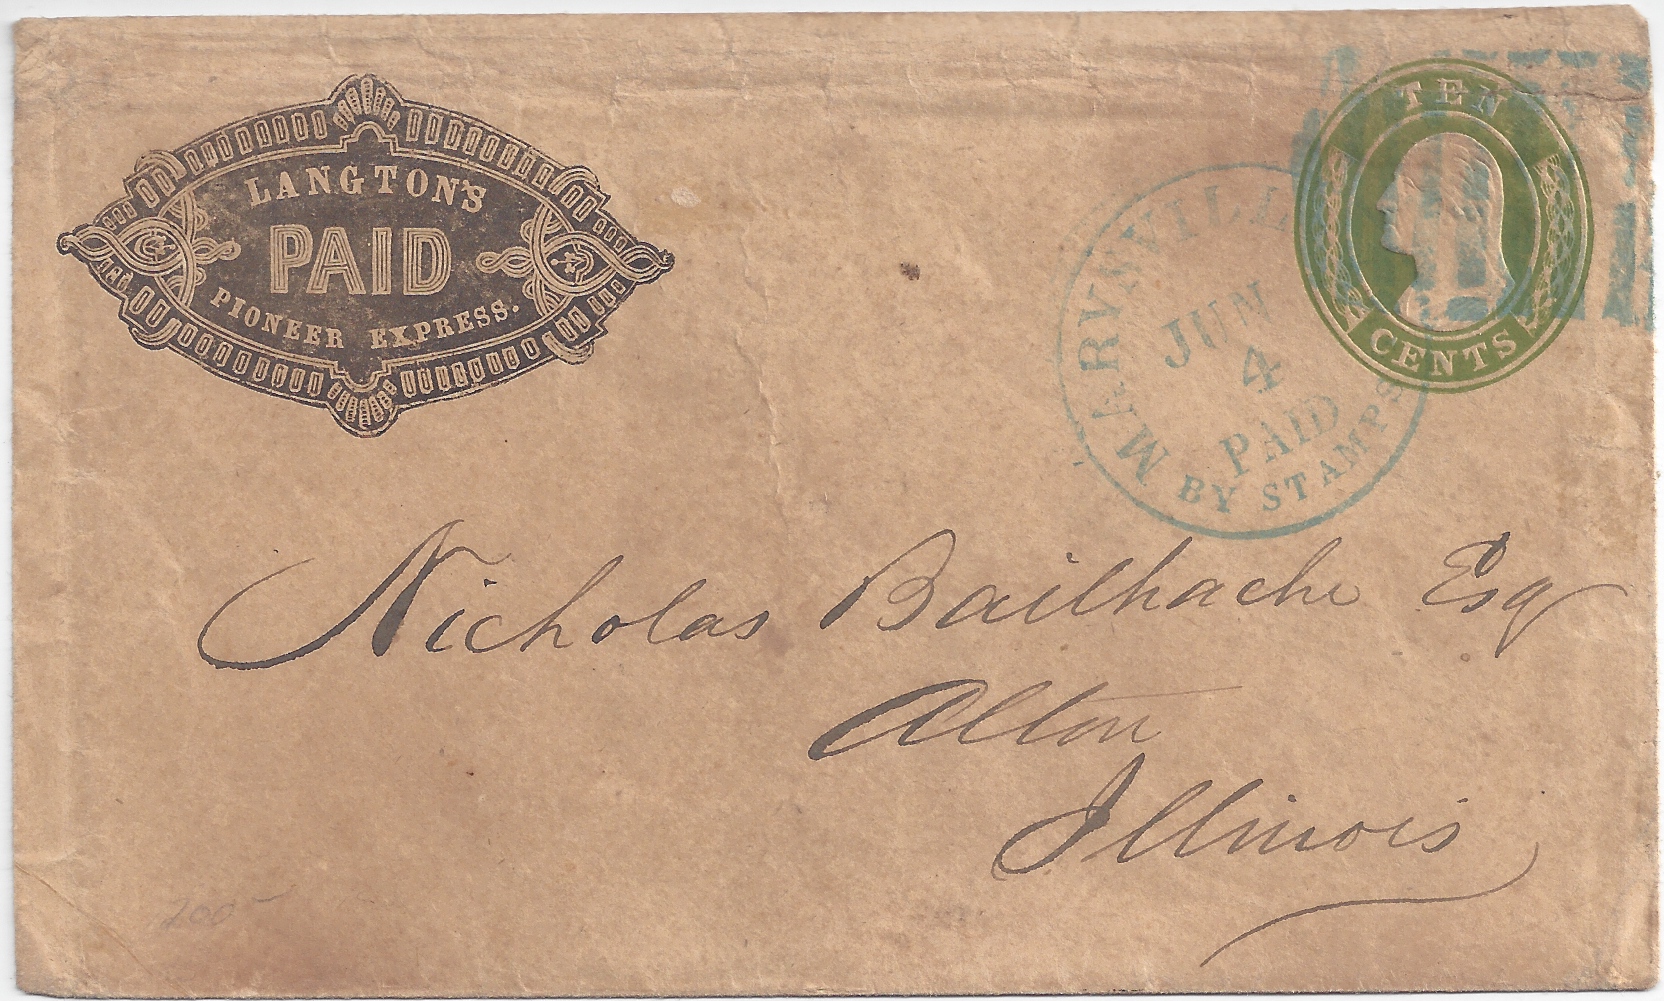 LANGTON'S
PAID
PIONEER EXPRESS.
TEN
CENTS
MARYSVILLE
JUN
4
PAID
BY STAMPS
Nicholas Bailhache Esq
Alton
Illinois
200-